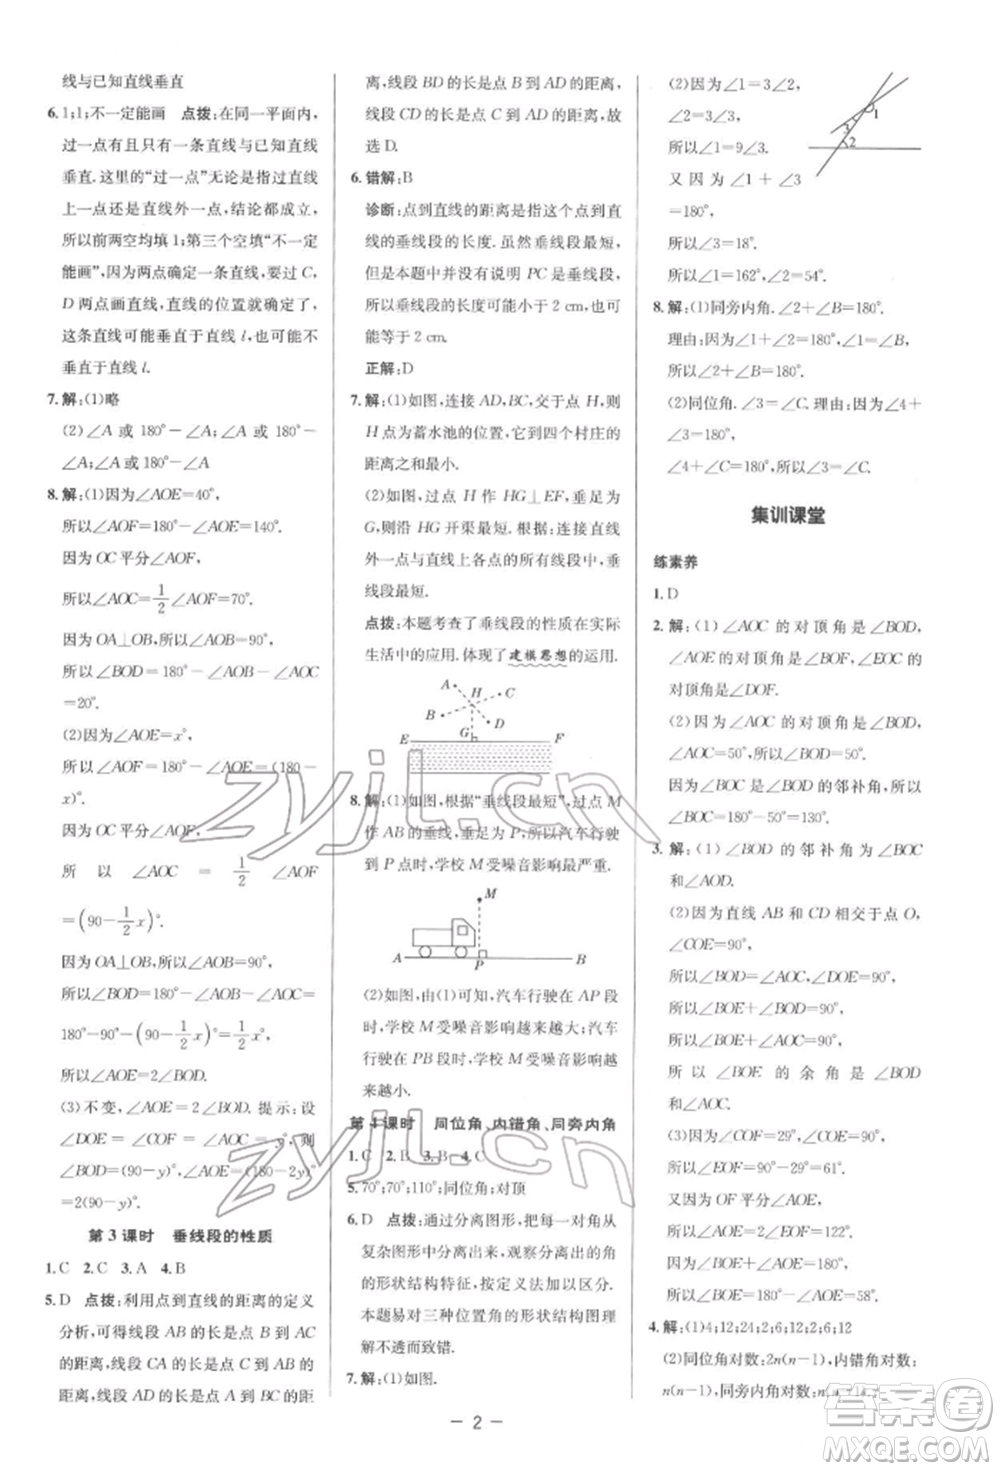 线与已知直线垂直
6.1;1;不一定能画　点拨:在同一平面内,
过一点有且只有一条直线与已知直线
垂直.这里的“过一点”无论是指过直线
上一点还是直线外一点,结论都成立,
所以前两空均填1;第三个空填“不一定
能画”,因为两点确定一条直线,要过C,
D两点画直线,直线的位置就确定了,
这条直线可能垂直于直线l,也可能不
垂直于直线l.
7.解:(1)略
(2)∠A或180°-∠A;∠A或180°-
∠A;∠A或180°-∠A
8.解:(1)因为∠AOE=40°,
所以∠AOF=180°-∠AOE=140°.
因为OC平分∠AOF,
所以∠AOC=1/2∠AOF=70°.
因为OA⊥OB,所以∠AOB=90°,
所以∠BOD=180°-∠AOC-∠AOB
=20°.
(2)因为∠AOE=x°,
所以∠AOF=180°-∠AOE=(180-
x)°.
因为OC平分∠AOF,
所以∠AOC=1/2∠AOF
=(90-1/2x)°.
因为OA⊥OB,所以∠AOB=90°,
所以∠BOD=180°-∠AOB-∠AOC=
180°-90°-(90-1/2x)°=(1/2x)°,
所以∠AOE=2∠BOD.
(3)不变,∠AOE=2∠BOD.提示:设
∠DOE=∠COF=∠AOC=y°,则
∠BOD=(90-y)°,∠AOE=(180-2y)°=
2(90-y)°.
第3课时　垂线段的性质
1.C 2.C 3.A 4.B
5.D　点拨:利用点到直线的距离的定义
分析,可得线段AB的长是点B到AC
的距离,线段CA的长是点C到AB的
距离,线段AD的长是点A到BC的距
离,线段BD的长是点B到AD的距离,
线段CD的长是点C到AD的距离,故
选D.
6.错解:B
诊断:点到直线的距离是指这个点到直
线的垂线段的长度.虽然垂线段最短,
但是本题中并没有说明PC是垂线段,
所以垂线段的长度可能小于2 cm,也可
能等于2 cm.
正解:D
7.解:(1)如图,连接AD,BC,交于点H,则
H点为蓄水池的位置,它到四个村庄的
距离之和最小.
(2)如图,过点H作HG⊥EF,垂足为
G,则沿HG开渠最短.根据:连接直线
外一点与直线上各点的所有线段中,垂
线段最短.
点拨:本题考查了垂线段的性质在实际
生活中的应用.体现了建模思想的运用.
A H C
B D
E G F
8.解:(1)如图,根据“垂线段最短”,过点M
作AB的垂线,垂足为P,所以汽车行驶
到P点时,学校M受噪音影响最严重.
M
A P B
(2)如图,由(1)可知,汽车行驶在AP段
时,学校M受噪音影响越来越大;汽车
行驶在PB段时,学校M受噪音影响越
来越小.
第4课时　同位角、内错角、同旁内角
1.C 2.B 3.B 4.C
5.70°;70°;110°;同位角;对顶
6.D　点拨:通过分离图形,把每一对角从
复杂图形中分离出来,观察分离出的角
的形状结构特征,按定义加以区分.
本题易对三种位置角的形状结构图理
解不透而致错.
7.解:(1)如图.
(2)因为∠1=3∠2,
∠2=3∠3,
所以∠1=9∠3.
又因为∠1+∠3
=180°,
所以∠3=18°.
所以∠1=162°,∠2=54°.
1
3
2
8.解:(1)同旁内角.∠2+∠B=180°.
理由:因为∠1+∠2=180°,∠1=∠B,
所以∠2+∠B=180°.
(2)同位角.∠3=∠C.理由:因为∠4+
∠3=180°,
∠4+∠C=180°,所以∠3=∠C.
集训课堂
练素养
1.D
2.解:(1)∠AOC的对顶角是∠BOD,
∠AOE的对顶角是∠BOF,∠EOC的
对顶角是∠DOF.
(2)因为∠AOC的对顶角是∠BOD,
∠AOC=50°,所以∠BOD=50°.
因为∠BOC是∠BOD的邻补角,所以
∠BOC=180°-50°=130°.
3.解:(1)∠BOD的邻补角为∠BOC
和∠AOD.
(2)因为直线AB和CD相交于点O,
∠COE=90°,
所以∠BOD=∠AOC,∠DOE=90°,
所以∠BOE+∠BOD=90°,
所以∠BOE+∠AOC=90°.
所以∠BOE的余角是∠BOD
和∠AOC.
(3)因为∠COF=29°,∠COE=90°,
所以∠EOF=90°-29°=61°.
又因为OF平分∠AOE,
所以∠AOE=2∠EOF=122°.
因为∠BOE+∠AOE=180°,
所以∠BOE=180°-∠AOE=58°.
4.解:(1)4;12;24;2;6;12;2;6;12
(2)同位角对数:2n(n-1),内错角对数:
n(n-1),同旁内角对数:n(n-1).
— 2 —
zyjl.cn
zyjl.cn
答案卷
MXQE.COM